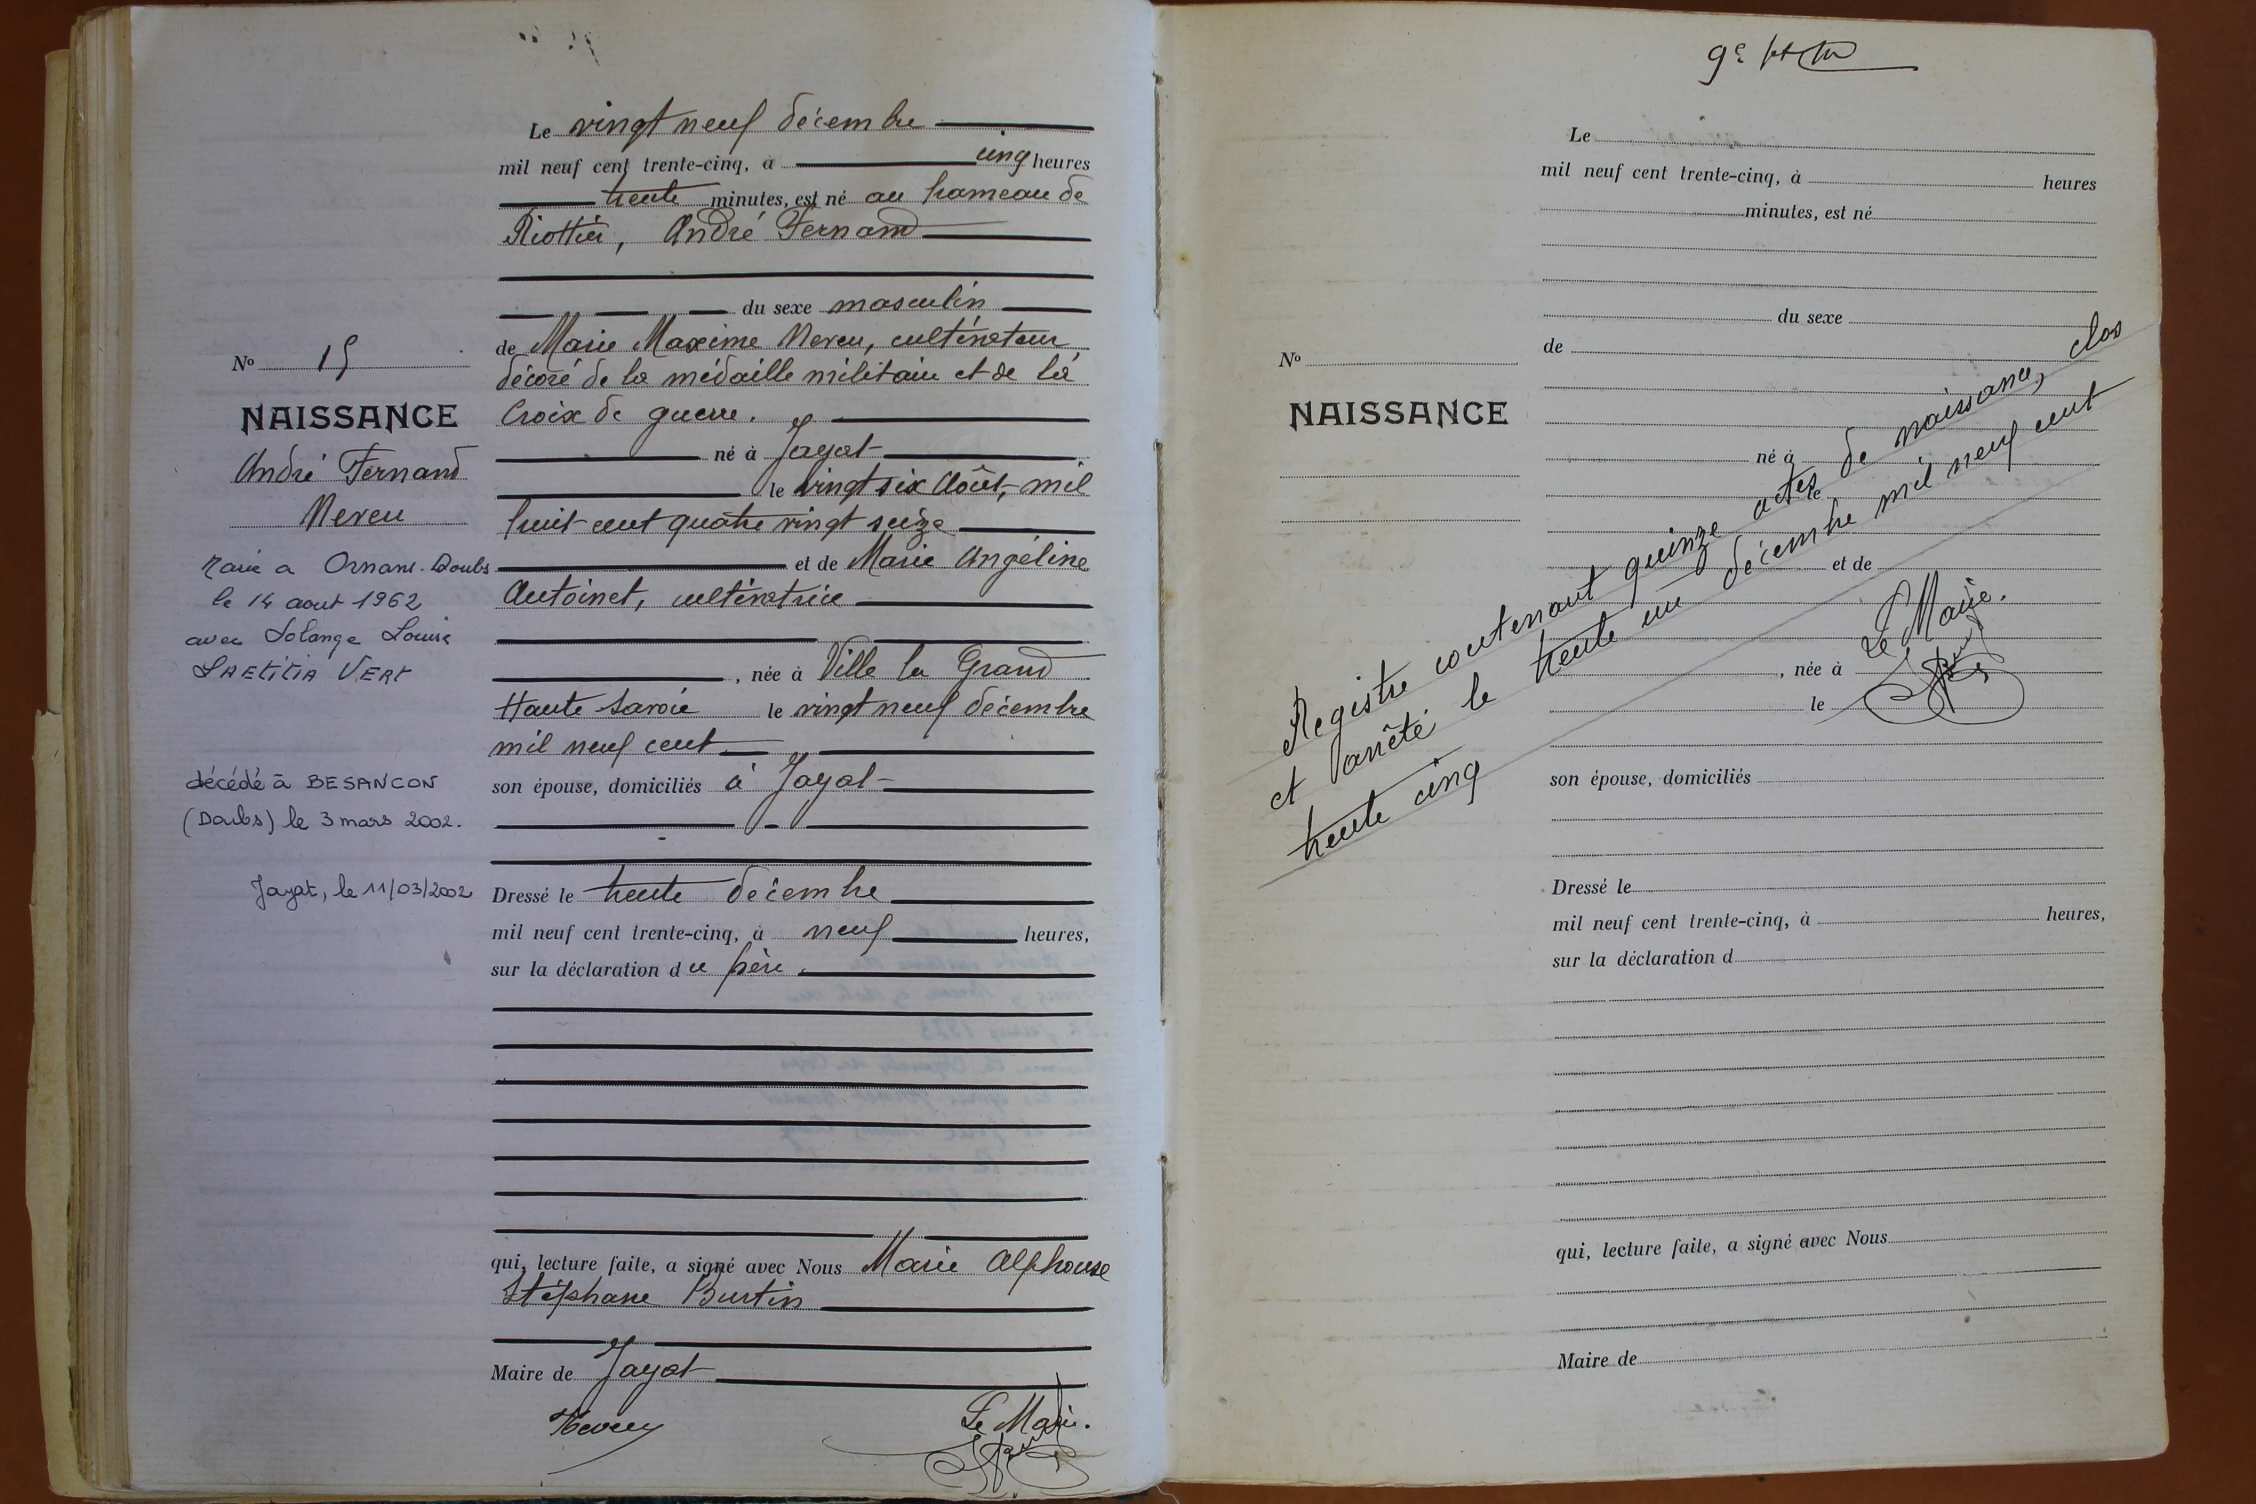 Le vingt neuf décembre
mil neuf cent trente-cinq, à cinq heures
trente minutes, est né au hameau de
Riottier, André Fernand
du sexe masculin
de Marie Maxime Nereu, cultivateur,
décoré de la médaille militaire et de la
Croix de guerre.
né à Jayat
le vingt six Août, mil
huit cent quatre vingt seize
et de Marie Angéline
Antoinet, cultivatrice
, née à Ville la Grand
Haute Savoie le vingt neuf décembre
mil neuf cent
son épouse, domiciliés à Jayat
Dressé le trente décembre
mil neuf cent trente-cinq, à neuf heures,
sur la déclaration du père.
qui, lecture faite, a signé avec Nous Marie Alphonse
Stéphane Burtin
Maire de Jayat
Le Maire.
No 15
NAISSANCE
André Fernand
Nereu
Marié a Ornans. Doubs
le 14 aout 1962
avec Solange Louise
LAETITIA VERT
décédé à BESANCON
(Doubs) le 3 mars 2002.
Jayat, le 11/03/2002
9e
Le
mil neuf cent trente-cinq, à heures
minutes, est né
du sexe
de
né à
le
et de
, née à
le
son épouse, domiciliés
Dressé le
mil neuf cent trente-cinq, à heures,
sur la déclaration d
qui, lecture faite, a signé avec Nous
Maire de
No
NAISSANCE
Registre contenant quinze actes de naissance, clos
et arrêté le trente un décembre mil neuf cent
trente cinq
Le Maire.